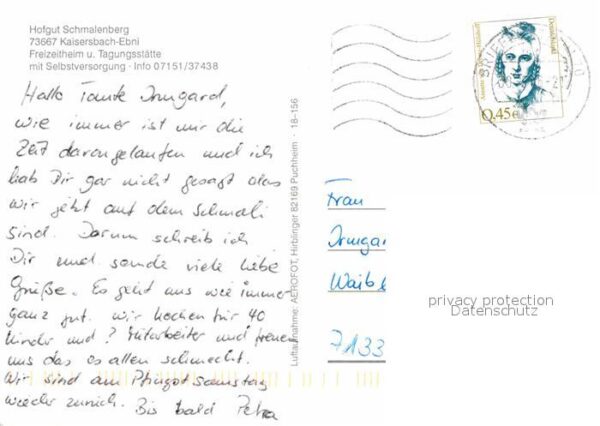 Hofgut Schmalenberg
73667 Kaisersbach-Ebni
Freizeitheim u. Tagungsstätte
mit Selbstversorgung · Info 07151/37438
Hallo Tante Irmgard,
wie immer ist mir die
Zeit davongelaufen und ich
hab Dir gar nicht gesagt das
wir jetzt auf dem Schmali
sind. Darum schreib ich
Dir und sende viele liebe
Grüße. Es geht uns wie immer
ganz gut. wir kochen für 40
Kinder und 7 Mitarbeiter und freuen
uns das es allen schmeckt.
Wir sind am Pfingstsamstag
wieder zurück. Bis bald Petra
Luftaufnahme: AEROFOT, Hirblinger 82169 Puchheim · 18-156
Deutschland
0,45€
Frau
Irmgar
Waibl
7133
privacy protection
Datenschutz